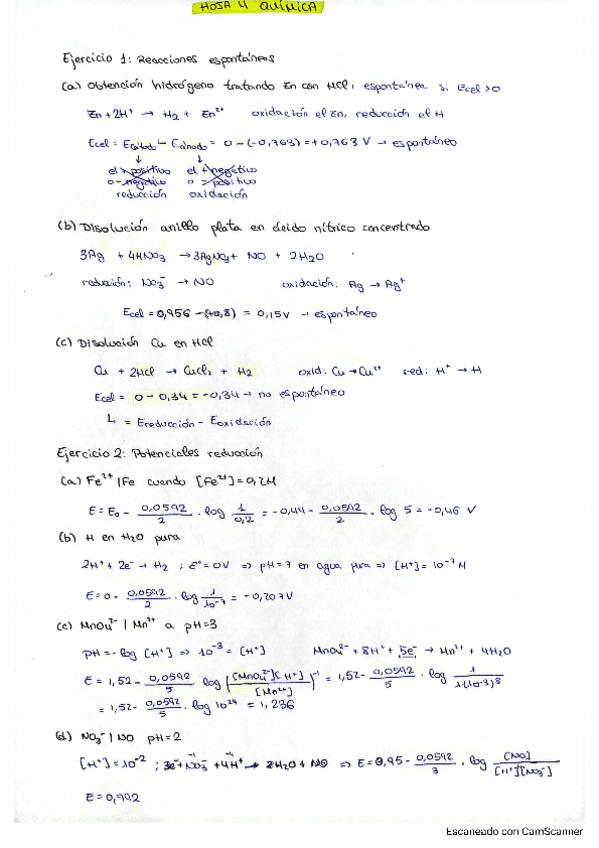 HOJA 4 QUÍMICA
Ejercicio 1: Reacciones espontáneas
(a) Obtención hidrógeno tratando Zn con HCl: espontánea si Ecel >0
Zn + 2H⁺ → H₂ + Zn²⁺ oxidación el Zn, reducción el H
Ecel = Ecátodo - Eánodo = 0 - (-0,763) = +0,763 V → espontáneo
↓ ↓
el + positivo el + negativo
o - negativo o = positivo
reducción oxidación
(b) Disolución anillo plata en ácido nítrico concentrado
3Ag + 4HNO₃ → 3AgNO₃ + NO + 2H₂O
reducción: NO₃⁻ → NO oxidación: Ag → Ag⁺
Ecel = 0,956 - (+0,8) = 0,15V → espontáneo
(c) Disolución Cu en HCl
Cu + 2HCl → CuCl₂ + H₂ oxid: Cu → Cu²⁺ red: H⁺ → H
Ecel = 0 - 0,34 = -0,34 → no espontáneo
↳ = Ereducción - Eoxidación
Ejercicio 2: Potenciales reducción
(a) Fe²⁺ | Fe cuando [Fe²⁺] = 0,2M
E = E₀ - 0,0592/2 · log 1/0,2 = -0,44 - 0,0592/2 · log 5 = -0,46 V
(b) H en H₂O pura
2H⁺ + 2e⁻ → H₂ ; E° = 0V ⇒ pH = 7 en agua pura ⇒ [H⁺] = 10⁻⁷ M
E = 0 - 0,0592/2 · log 1/10⁻⁷ = -0,207V
(c) MnO₄²⁻ | Mn²⁺ a pH=3
pH = -log [H⁺] ⇒ 10⁻³ = [H⁺] MnO₄²⁻ + 8H⁺ + 5e⁻ → Mn²⁺ + 4H₂O
E = 1,52 - 0,0592/5 log [[MnO₄²⁻][H⁺]/[Mn²⁺]]⁻¹ = 1,52 - 0,0592/5 · log 1/1·(10⁻³)⁸
= 1,52 - 0,0592/5 · log 10²⁴ = 1,236
(d) NO₃⁻ | NO pH=2
[H⁺] = 10⁻² ; 3e⁻ + NO₃⁻ + 4H⁺ → 2H₂O + NO ⇒ E = 0,95 - 0,0592/3 · log [NO]/[H⁺][NO₃⁻]
E = 0,792
Escaneado con CamScanner